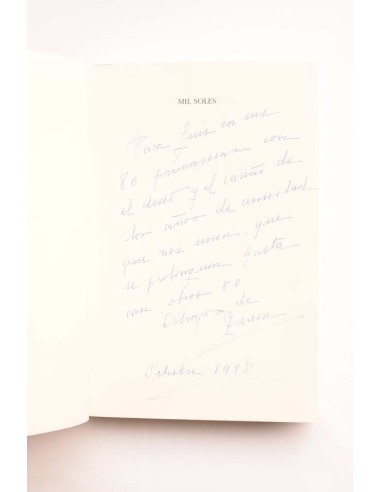 MIL SOLES
Para Luis en sus
80 primaveras con
el deseo y el cariño de
los años de amistad
que nos unen, que
se prolonguen hasta
con otros 80
de
Octubre 1998